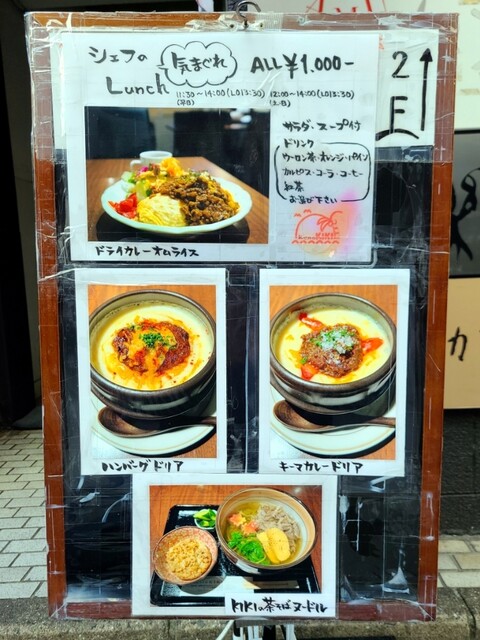 シェフの
気まぐれ
Lunch
ALL ¥1,000-
11:30～14:00(LO13:30) 12:00～14:00(LO13:30)
(平日) (土、日)
2F
サラダ・スープ付
ドリンク
ウーロン茶・オレンジ・パイン
カルピス・コーラ・コーヒー
紅茶
お選び下さい
ドライカレーオムライス
ハンバーグドリア
キーマカレードリア
KIKIの茶そばヌードル